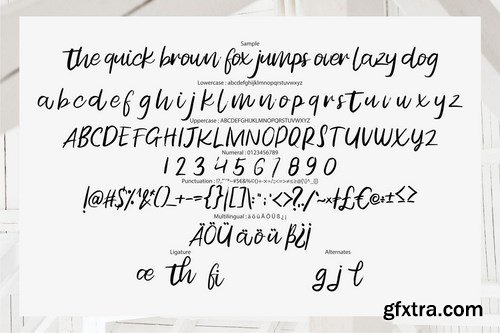 Sample
the quick brown fox jumps over lazy dog
Lowercase : abcdefghijklmnopqrstuvwxyz
a b c d e f g h i j k l m n o p q r s t u v w x y z
Uppercase : ABCDEFGHIJKLMNOPQRSTUVWXYZ
ABCDEFGHIJKLMNOPQRSTUVWXYZ
Numeral : 0123456789
1 2 3 4 5 6 7 8 9 0
Punctuation :
Multilingual : ä ö ü Ä Ö Ü ß ¿ ¡
ÄÖÜ äöü ß¿¡
Ligature
Alternates
œ th fi
g j t
gfxtra.com